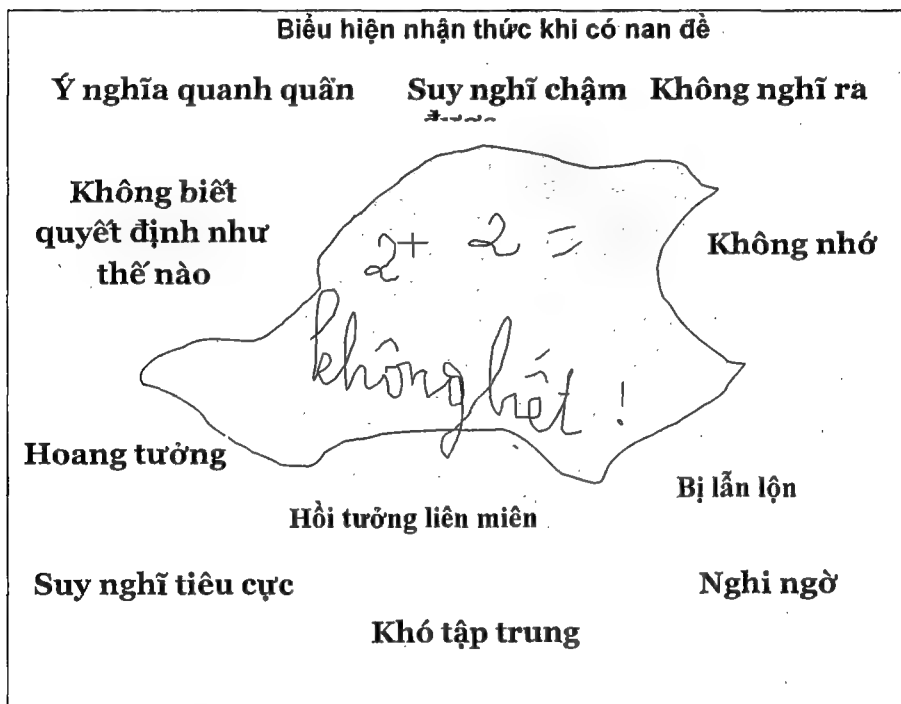 Biểu hiện nhận thức khi có nan đề
Ý nghĩa quanh quẩn Suy nghĩ chậm Không nghĩ ra
Không biết
quyết định như
thế nào
2 + 2 =
Không nhớ
không biết !
Hoang tưởng
Bị lẫn lộn
Hồi tưởng liên miên
Suy nghĩ tiêu cực
Nghi ngờ
Khó tập trung